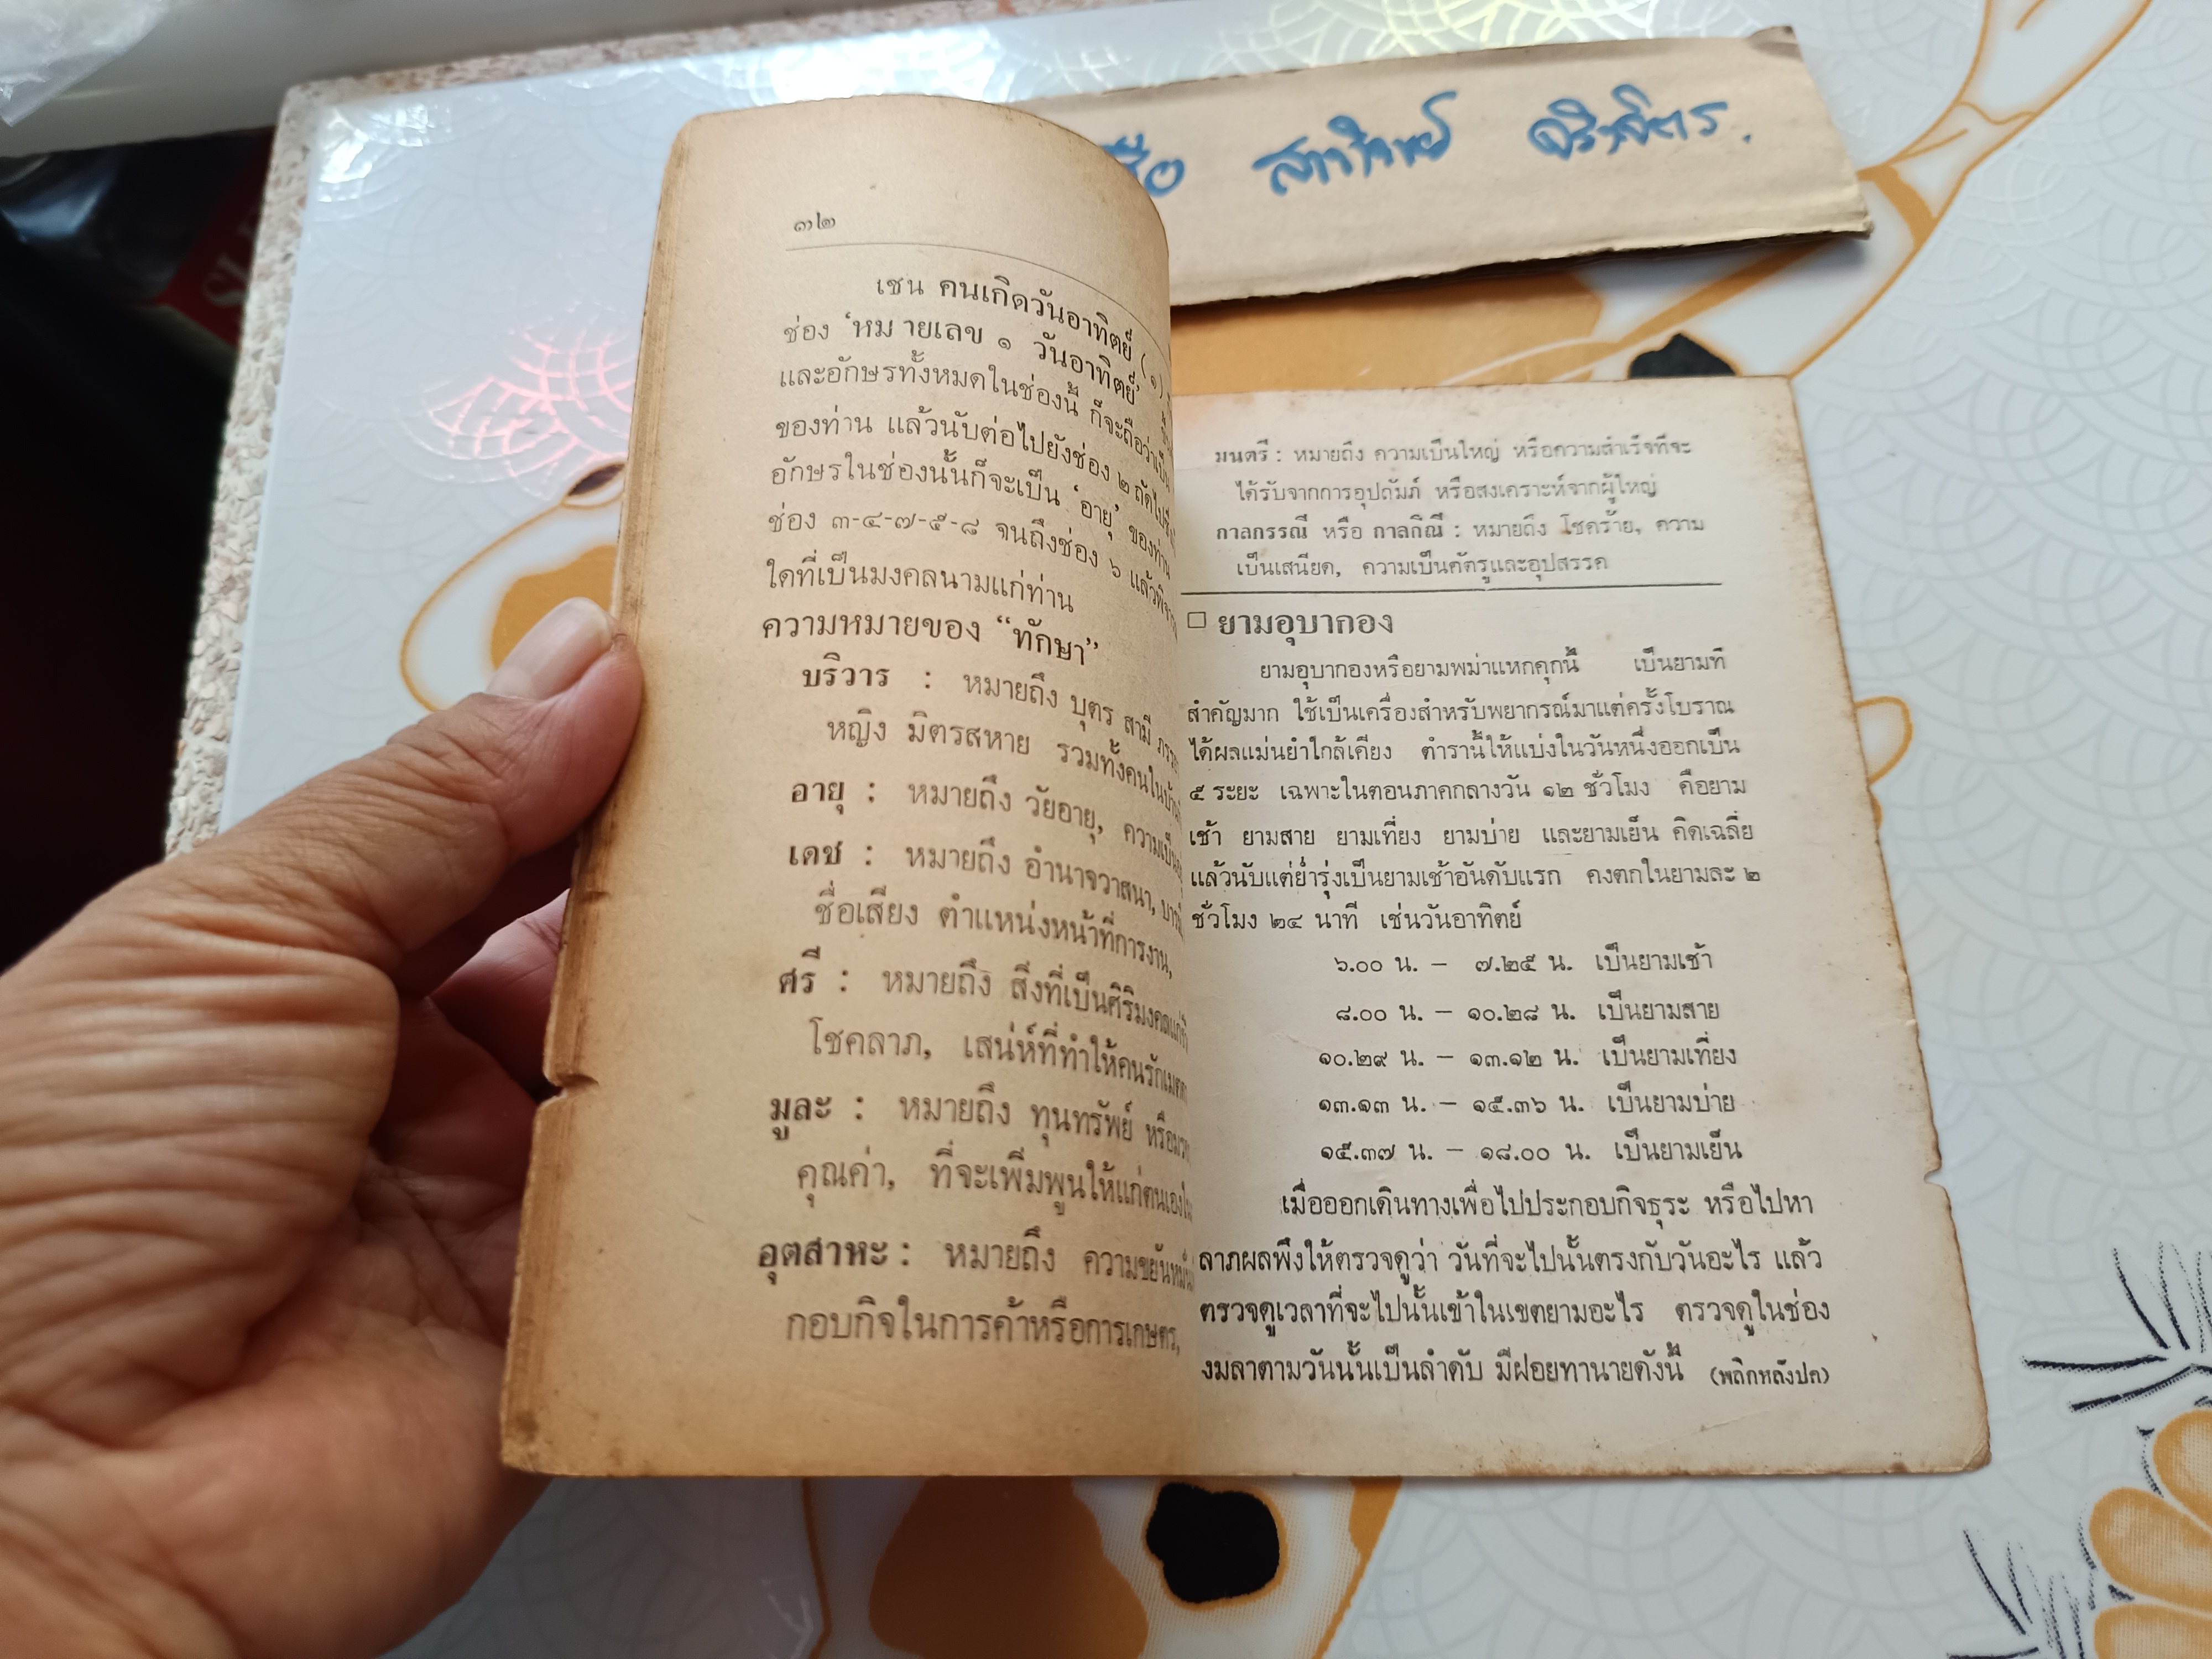 สาวิตรี
๓๒
เช่น คนเกิดวันอาทิตย์ (๑)
ช่อง ‘หมายเลข ๑ วันอาทิตย์’
และอักษรทั้งหมดในช่องนี้ ก็จะถือว่าเป็น
ของท่าน แล้วนับต่อไปยังช่อง ๒ ถัดไป
อักษรในช่องนั้นก็จะเป็น ‘อายุ’ ของท่าน
ช่อง ๓-๔-๗-๕-๘ จนถึงช่อง ๖ แล้ว
ใดที่เป็นมงคลนามแก่ท่าน
ความหมายของ “ทักษา”
บริวาร : หมายถึง บุตร สามี
หญิง มิตรสหาย รวมทั้งคนในบ้าน
อายุ : หมายถึง วัยอายุ, ความเป็น
เดช : หมายถึง อำนาจวาสนา,
ชื่อเสียง ตำแหน่งหน้าที่การงาน,
ศรี : หมายถึง สิ่งที่เป็นศิริมงคล
โชคลาภ, เสน่ห์ที่ทำให้คนรัก
มูละ : หมายถึง ทุนทรัพย์ หรือ
คุณค่า, ที่จะเพิ่มพูนให้แก่ตนเอง
อุตสาหะ : หมายถึง ความขยัน
กอบกิจในการค้าหรือการเกษตร,
มนตรี : หมายถึง ความเป็นใหญ่ หรือความสำเร็จที่จะ
ได้รับจากการอุปถัมภ์ หรือสงเคราะห์จากผู้ใหญ่
กาลกรรณี หรือ กาลกิณี : หมายถึง โชคร้าย, ความ
เป็นเสนียด, ความเป็นศัตรูและอุปสรรค
ยามอุบากอง
ยามอุบากองหรือยามพม่าแหกคุกนี้ เป็นยามที่
สำคัญมาก ใช้เป็นเครื่องสำหรับพยากรณ์มาแต่ครั้งโบราณ
ได้ผลแม่นยำใกล้เคียง ตำรานี้ให้แบ่งในวันหนึ่งออกเป็น
๕ ระยะ เฉพาะในตอนภาคกลางวัน ๑๒ ชั่วโมง คือยาม
เช้า ยามสาย ยามเที่ยง ยามบ่าย และยามเย็น คิดเฉลี่ย
แล้วนับแต่ย่ำรุ่งเป็นยามเช้าอันดับแรก คงตกในยามละ ๒
ชั่วโมง ๒๔ นาที เช่นวันอาทิตย์
๖.๐๐ น. – ๗.๒๕ น. เป็นยามเช้า
๘.๐๐ น. – ๑๐.๒๘ น. เป็นยามสาย
๑๐.๒๙ น. – ๑๓.๑๒ น. เป็นยามเที่ยง
๑๓.๑๓ น. – ๑๕.๓๖ น. เป็นยามบ่าย
๑๕.๓๗ น. – ๑๘.๐๐ น. เป็นยามเย็น
เมื่อออกเดินทางเพื่อไปประกอบกิจธุระ หรือไปหา
ลาภผลพึงให้ตรวจดูว่า วันที่จะไปนั้นตรงกับวันอะไร แล้ว
ตรวจดูเวลาที่จะไปนั้นเข้าในเขตยามอะไร ตรวจดูในช่อง
งมลาตามวันนั้นเป็นลำดับ มีฝอยทานายดังนี้ (พลิกหลังปก)